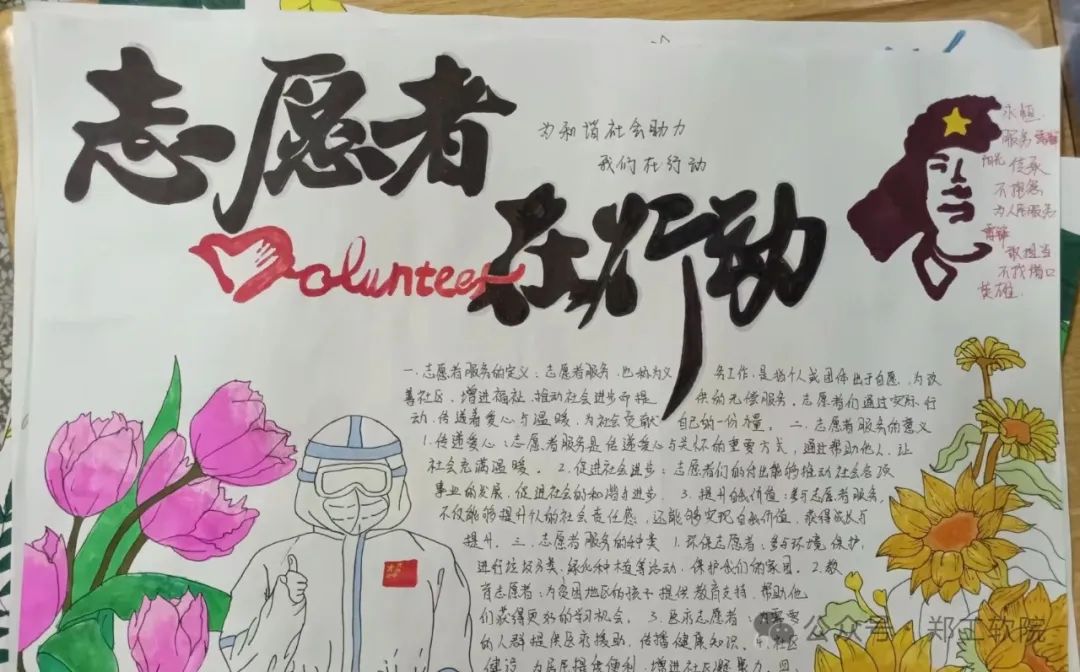 志愿者
为和谐社会助力
我们在行动
在行动
Volunteer
永恒
服务
传承
不抱怨
为人民服务
雷锋
敢担当
不找借口
英雄
一.志愿者服务的定义：志愿者服务，也称为义务工作，是指个人或团体出于自愿，为改
善社区、增进福祉、推动社会进步而提供的无偿服务。志愿者们通过实际行
动，传递着爱心与温暖，为社会贡献自己的一份力量。二.志愿者服务的意义
1.传递爱心：志愿者服务是传递爱心与关怀的重要方式，通过帮助他人，让
社会充满温暖。2.促进社会进步：志愿者们的付出能够推动社会各项
事业的发展，促进社会的和谐与进步。3.提升自我价值：参与志愿者服务，
不仅能够提升个人的社会责任感，还能够实现自我价值，获得成长与
提升。三.志愿者服务的种类 1.环保志愿者：参与环境保护，
进行垃圾分类、绿化种植等活动，保护我们的家园。2.教
育志愿者：为贫困地区的孩子提供教育支持，帮助他
们获得更好的学习机会。3.医疗志愿者：为需要
的人群提供医疗援助，传播健康知识。4.社区
建设：为居民提供便利，增进社区凝聚力。四.
公众号 郑工软院